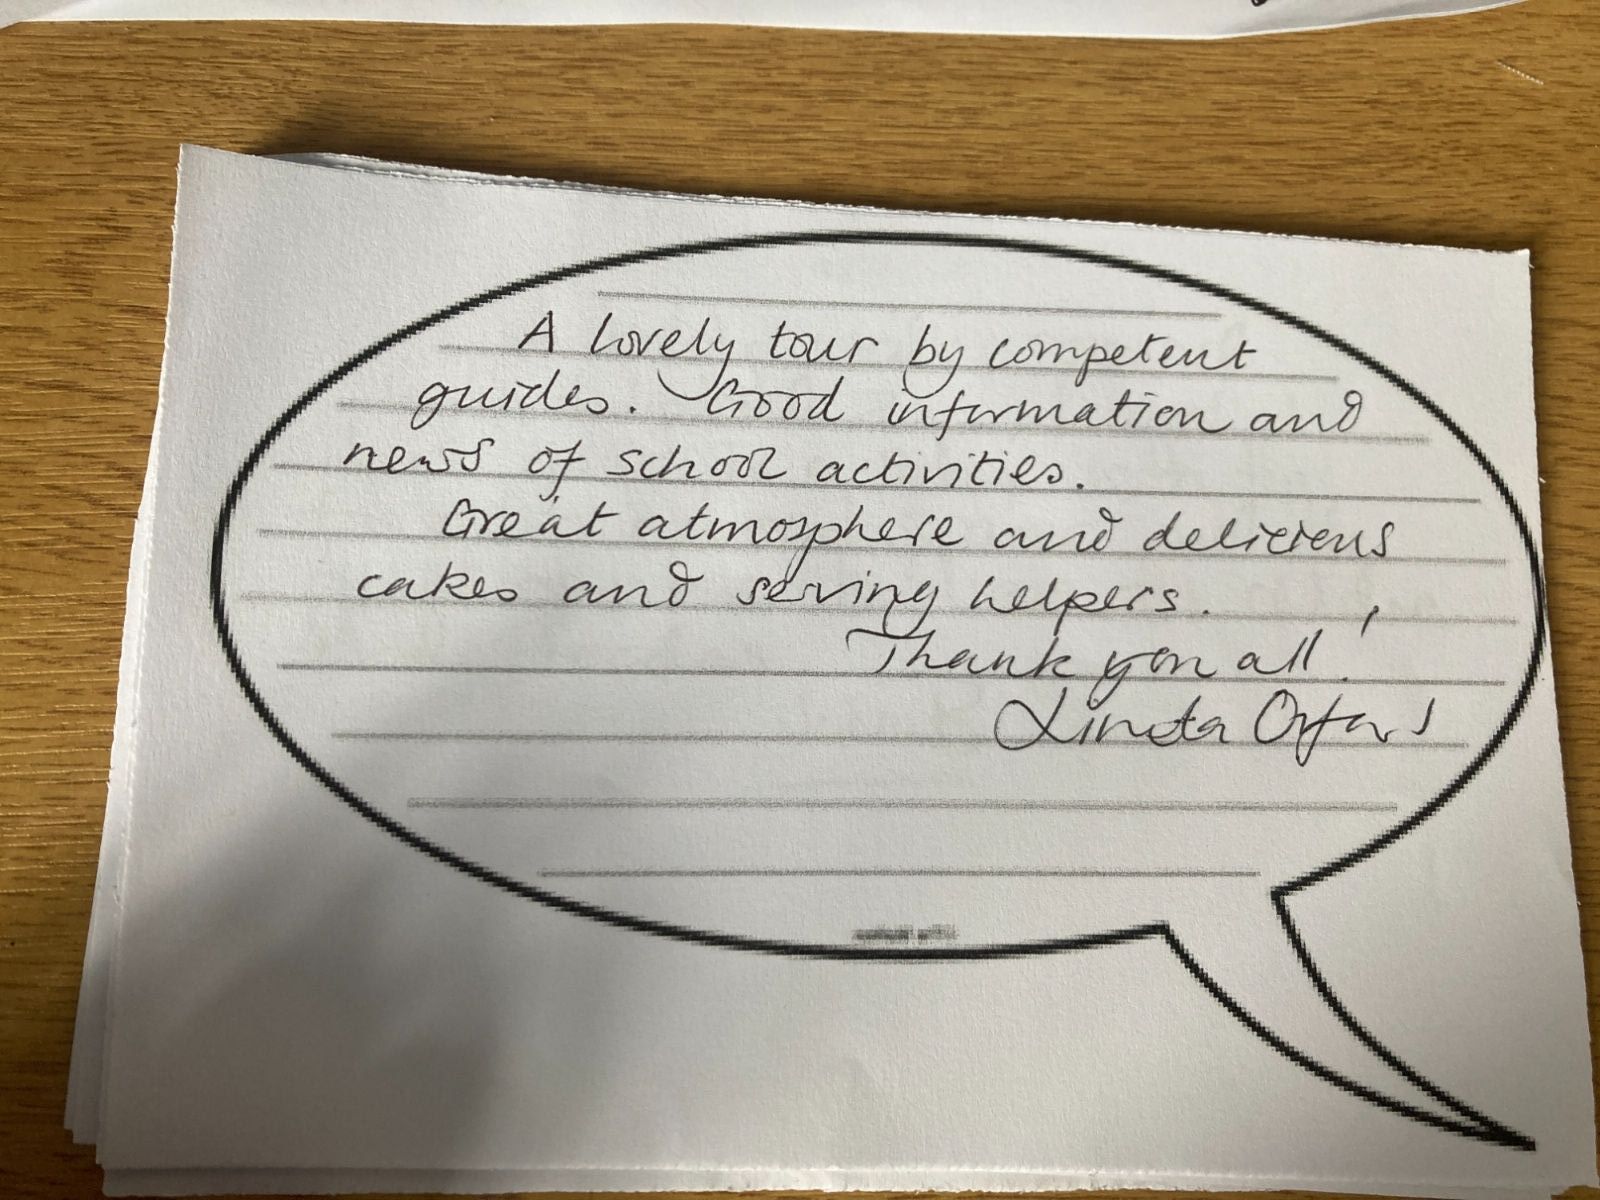 A lovely tour by competent
guides. Good information and
news of school activities.
Great atmosphere and delicious
cakes and serving helpers.
Thank you all!
Linda